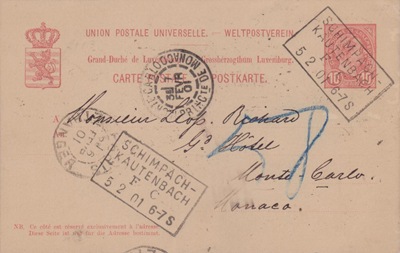 UNION POSTALE UNIVERSELLE. WELTPOSTVEREIN.
Grand-Duché de Luxembourg. Grossherzogthum Luxemburg.
CARTE POSTALE. POSTKARTE.
10 10
SCHIMPACH-
KAUTENBACH
F C
5 2 01 6-7S
PRINCTE DE MONACO
Monsieur Léop. Richard
Gd Hôtel
Monte-Carlo.
Monaco.
58
SCHIMPACH-
KAUTENBACH
F C
5 2 01 6-7S
NB. Ce côté est réservé exclusivement à l'adresse.
Diese Seite ist nur für die Adresse bestimmt.